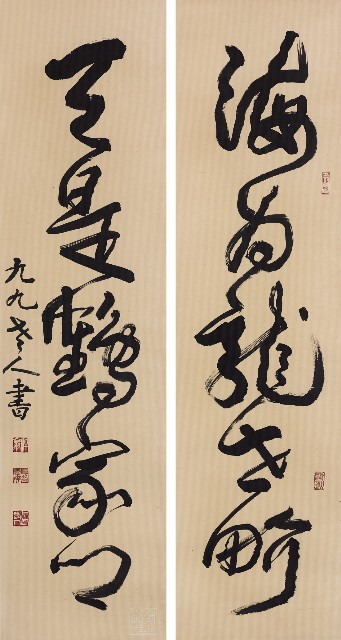 海為龍世界
天是鶴家鄉
九九老人書